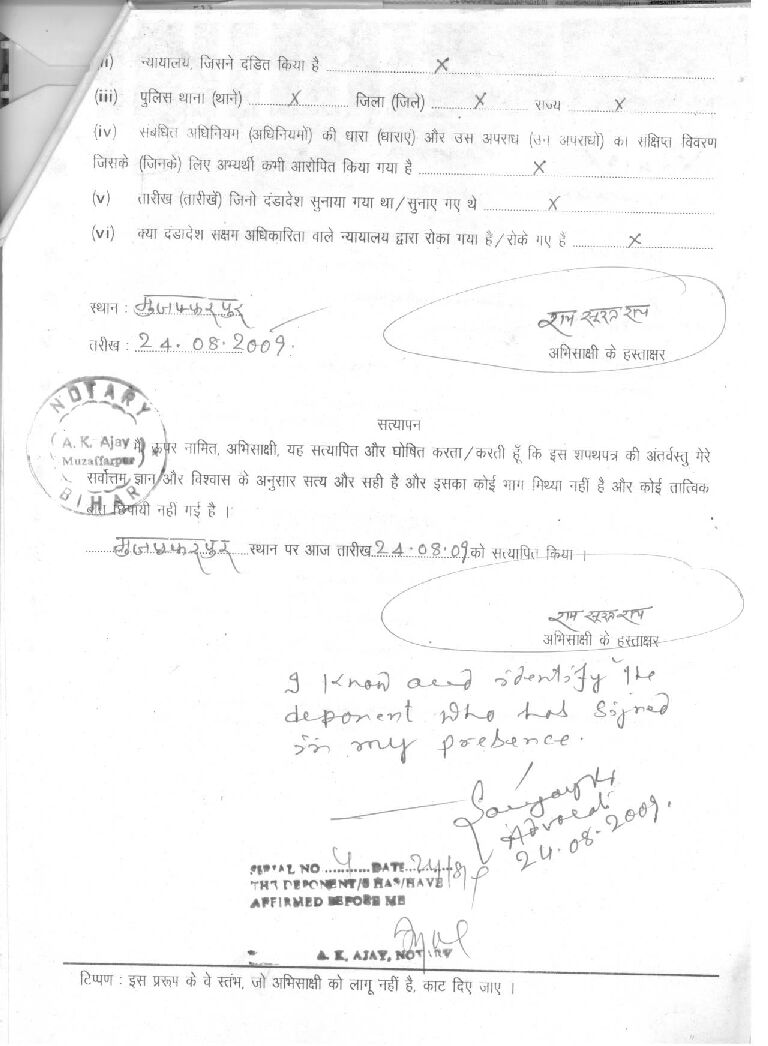 ii) न्यायालय, जिसने दंडित किया है ........ X ........
(iii) पुलिस थाना (थाने) ........ X ........ जिला (जिले) ........ X ........ राज्य ........ X ........
(iv) संबंधित अधिनियम (अधिनियमों) की धारा (धाराएं) और उस अपराध (उन अपराधों) का संक्षिप्त विवरण
जिसके (जिनके) लिए अभ्यर्थी कभी आरोपित किया गया है ........ X ........
(v) तारीख (तारीखें) जिनो दंडादेश सुनाया गया था/सुनाए गए थे ........ X ........
(vi) क्या दंडादेश सक्षम अधिकारिता वाले न्यायालय द्वारा रोका गया है/रोके गए हैं ........ X ........
स्थान : मुजफ्फरपुर
राम सूरत राय
तरीख : 24.08.2009.
अभिसाक्षी के हस्ताक्षर
NOTARY
A. K. Ajay
Muzaffarpur
BIHAR
सत्यापन
मैं ऊपर नामित, अभिसाक्षी, यह सत्यापित और घोषित करता/करती हूँ कि इस शपथपत्र की अंतर्वस्तु मेरे
सर्वोत्तम ज्ञान और विश्वास के अनुसार सत्य और सही है और इसका कोई भाग मिथ्या नहीं है और कोई तात्विक
बात छिपायी नहीं गई है ।
मुजफ्फरपुर स्थान पर आज तारीख 24.08.09 को सत्यापित किया ।
राम सूरत राय
अभिसाक्षी के हस्ताक्षर
I know and identify the
deponent who has signed
in my presence.
Advocate
24.08.2009.
SERIAL NO. 4 DATE 24/8/9
THE DEPONENT/S HAS/HAVE
AFFIRMED BEFORE ME
A. K. AJAY, NOTARY
टिप्पण : इस प्ररूप के वे स्तंभ, जो अभिसाक्षी को लागू नहीं है, काट दिए जाए ।